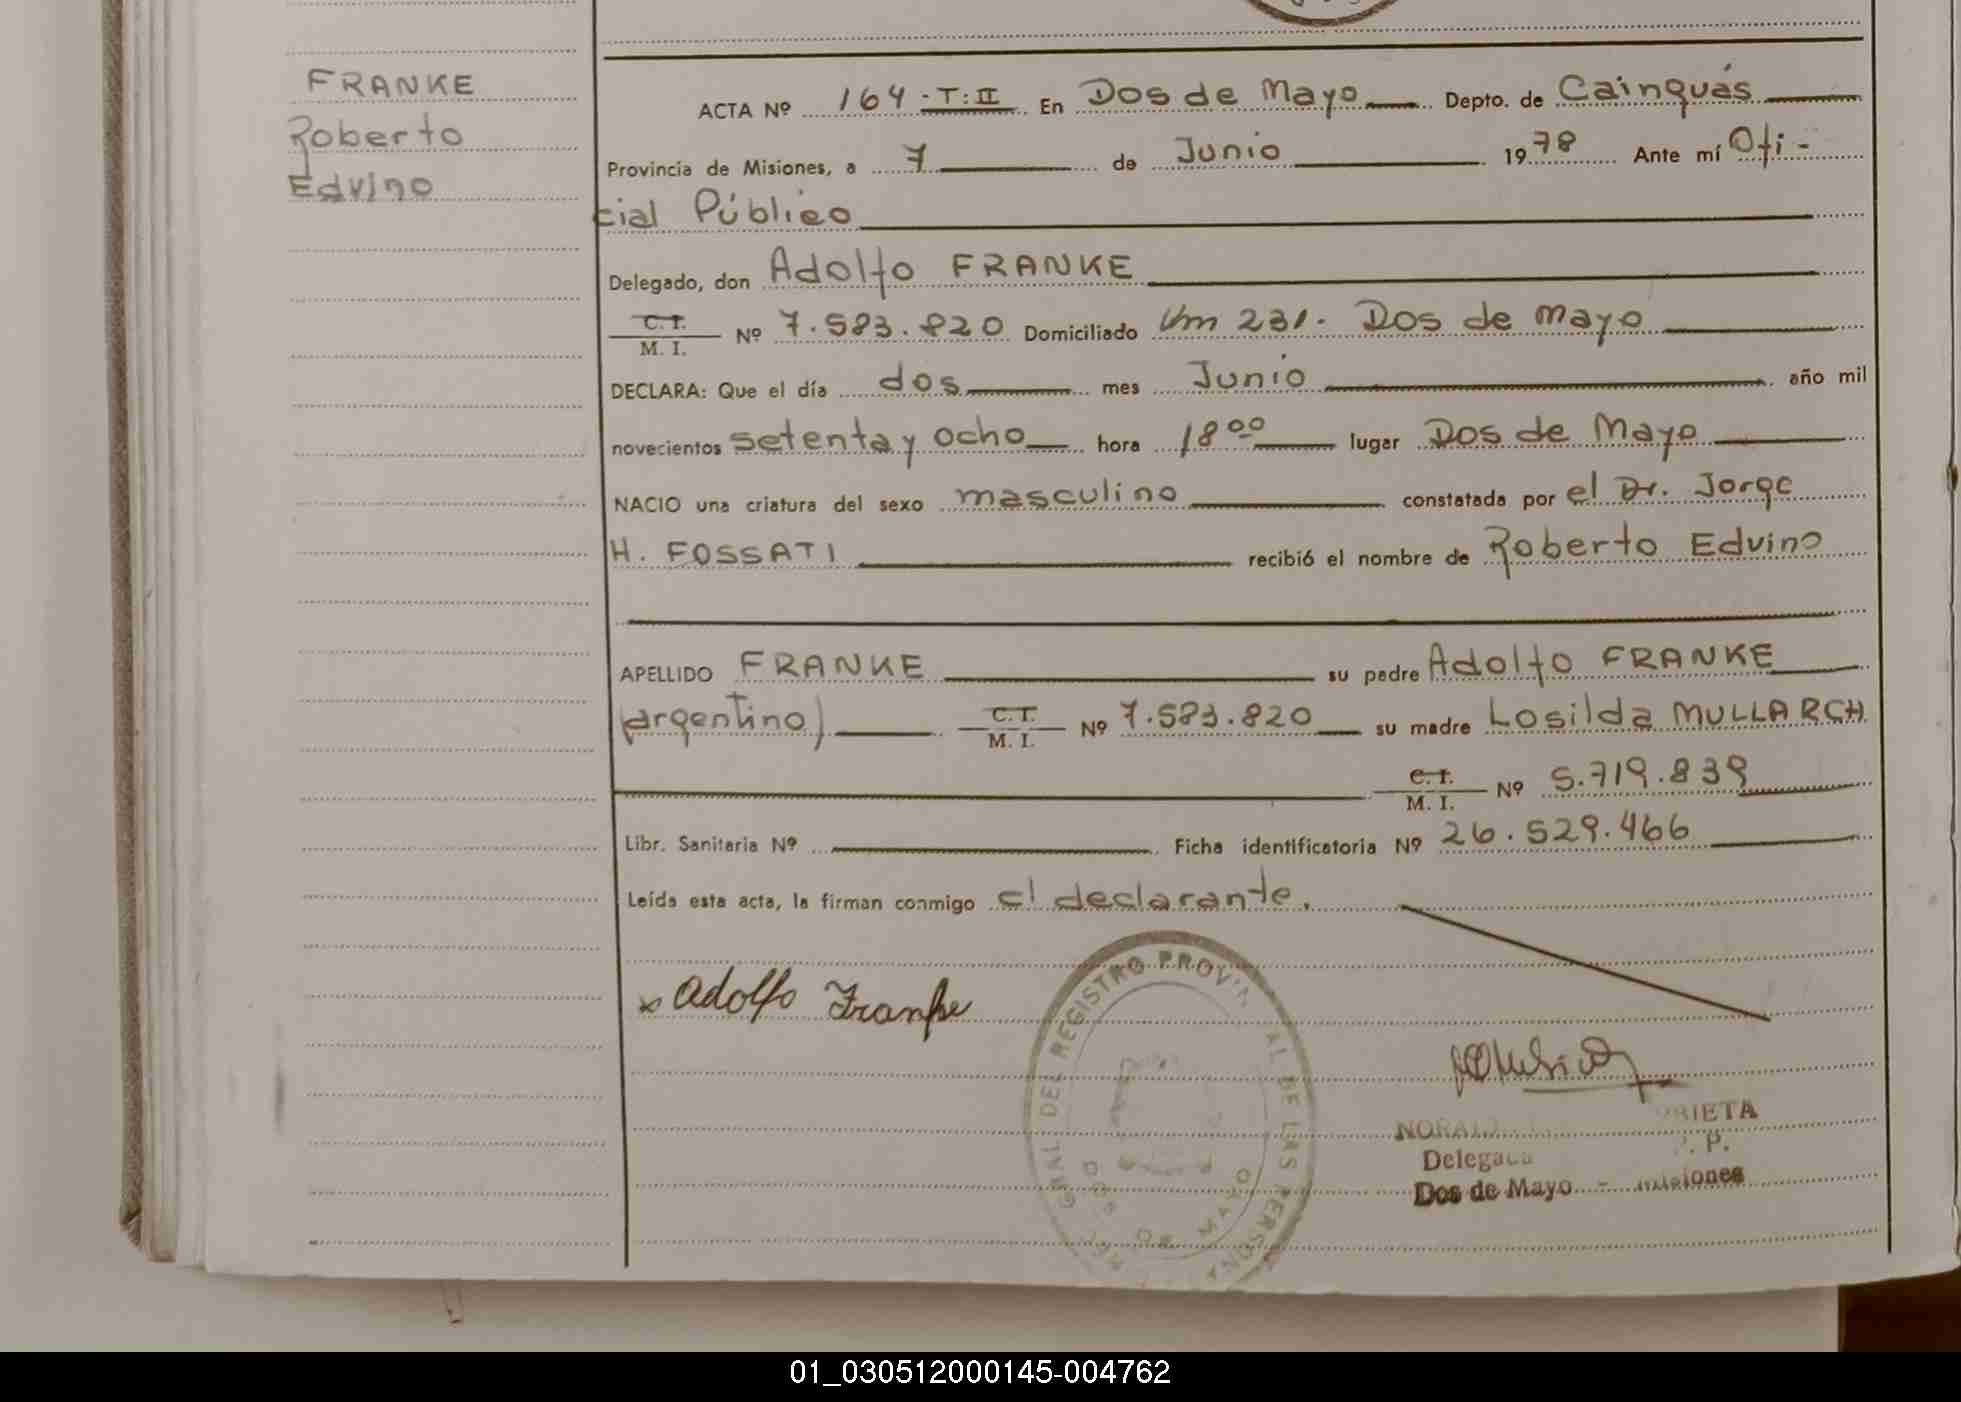 FRANKE
Roberto
Edvino
ACTA Nº 164 - T: II En Dos de Mayo Depto. de Cainguás
Provincia de Misiones, a 7 de Junio 1978 Ante mí Ofi-
cial Público
Delegado, don Adolfo FRANKE
C. I.
M. I. Nº 7.583.820 Domiciliado Km 231. Dos de Mayo
DECLARA: Que el día dos mes Junio año mil
novecientos setenta y ocho hora 18 00 lugar Dos de Mayo
NACIO una criatura del sexo masculino constatada por el Dr. Jorge
H. FOSSATI recibió el nombre de Roberto Edvino
APELLIDO FRANKE su padre Adolfo FRANKE
(argentino) C. I. M. I. Nº 7.583.820 su madre Losilda MULLARCH
C. I. M. I. Nº 5.719.839
Libr. Sanitaria Nº Ficha identificatoria Nº 26.529.466
Leída esta acta, la firman conmigo el declarante.
x Adolfo Franke
GRAL DEL REGISTRO PROV. AL DE LAS PERSONAS
DOS DE MAYO
Dos de Mayo - Misiones
01_030512000145-004762